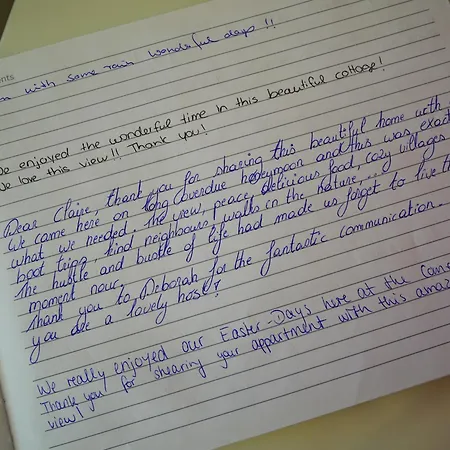 ents
with some rain wonderful days !!
e enjoyed the wonderful time in this beautiful cottage!
e love this view!! Thank you!
Dear Claire, thank you for sharing this beautiful home with
We came here on long overdue honeymoon and this was exact
what we needed. The view, peace, delicious food, cozy villages
boat trips, kind neighbours, walks in the nature,...
The hustle and bustle of life had made us forget to live th
moment nour.
thank you to Deborah for the fantastic communication.
you are a lovely host!
We really enjoyed our Easter-Days here at the Cana
Thank you for shearing your appartment with this amaz
view!